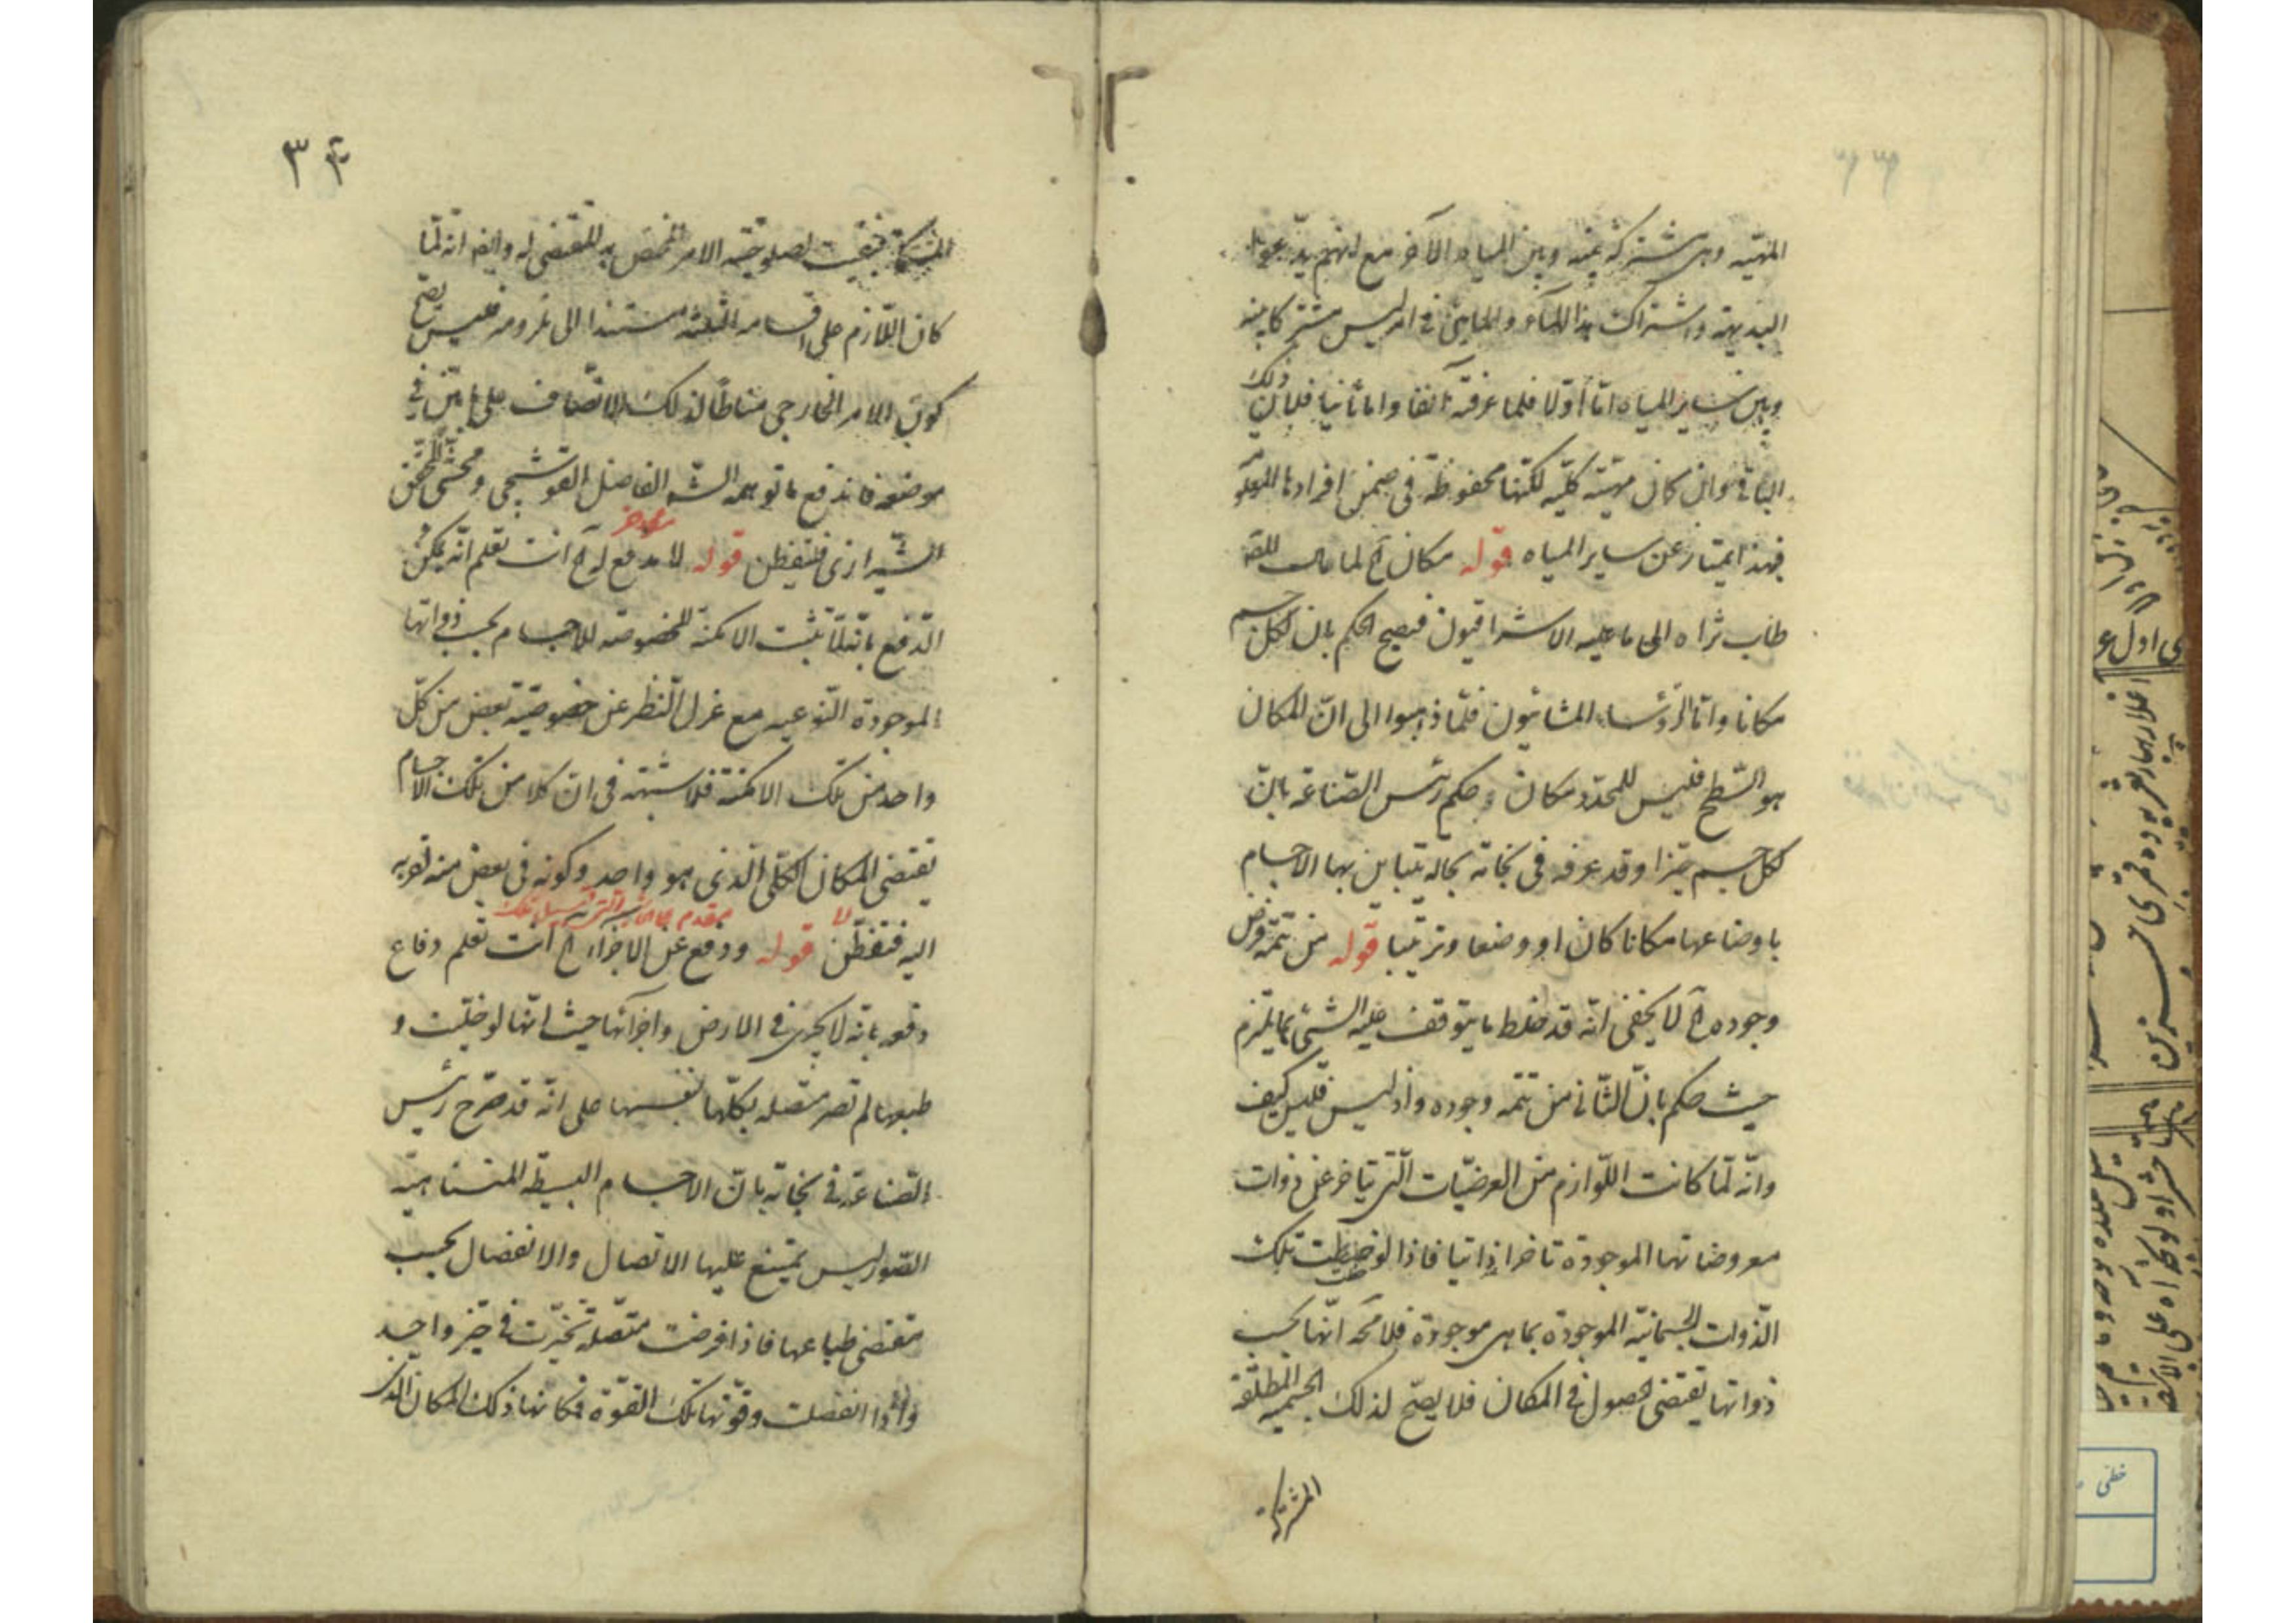 المهيّة وهى مشتركة بينه وبين المياه الآخر مع انهم يدّعون
البديهة واشتراك هذا الماء والمباين فى امر ليس مشتركا بينه
وبين ساير المياه امّا اوّلا فلما عرفته آنفا واما ثانيا فلان ذلك
الباقى وان كان مهيّته كلّيه لكنّها محفوظة فى ضمن افرادها
فبهذا يمتاز عن ساير المياه قوله مكان آه لما مال
طاب ثراه الى ما عليه الاشراقيون فيصح الحكم بان لكل جسم
مكانا وامّا الرّؤساء المشائيون فلمّا ذهبوا الى انّ المكان
هو السّطح فليس للمحدّد مكان وحكم رئيس الصّناعة بانّ
لكل جسم حيّزا وقد عرفه فى نجاته بحاله يتباين بها الاجسام
باوضاعها مكانا كان او وضعا وترتيبا قوله من تتمّة فرض
وجوده آه لا يخفى انّه قد خلط ما يتوقف عليه الشئ بما يلزم
حيث حكم بانّ الثّانى من تتمّه وجوده واذ ليس فليس كيف
وانّه لمّا كانت اللّوازم من العرضيّات الّتى يتاخر عن ذوات
معروضاتها الموجودة تاخرا ذاتيا فاذا لوحظت تلك
الذّوات الجسمانيّه الموجودة بما هى موجودة فلا مح انّها بحسب
ذواتها يقتضى الحصول فى المكان فلا يصحّ لذلك الجسميه المطلقة
المشتركة
٣
المشتركة فبقيت لصلوحيّته الامر المخصّص به المقتضى له وايضا انه لمّا
كان اللّازم على اقسامه الثلثه مستندا الى ملزومه فليس يصحّ
كون الامر الخارجى مناطا لذلك الاتّصاف على ما بيّن فى
موضعه فاندفع ما توهمه الشه الفاضل القوشجى ومحشّى المحقّق
الشّيرازى فليتفطّن قوله لا مدفع له آه انت تعلم انّه يمكن
الدّفع بانّه لمّا يثبت الامكنة المخصوصة للاجسام بحسب ذواتها
الموجودة النّوعيه مع عزل النّظر عن خصوصيّه بعض من كلّ
واحد من تلك الامكنة فلا شبهة فى ان كلا من تلك الاجسام
تقتضى المكان الكلّى الّذى هو واحد وكونه فى بعض منه لقربه
اليه فتفطّن قوله ودفع عن الاجزاء آه انت تعلم دفاع
دفعه بانّه لا يجرى فى الارض واجزائها حيث انّها لو خلّيت و
طبعها لم تصر متّصله بكلّها بنفسها على انّه قد صرّح رئيس
الصّناعة فى نجاته بانّ الاجسام البسيطه المتشابهيّه
الصّور ليس يمتنع عليها الاتصال والانفصال بحسب
مقتضى طباعها فاذا فرضت متّصله تحيّزت فى حيّز واحد
واذا انفصلت وقوّتها تلك القوّة فمكانها ذلك المكان الذى